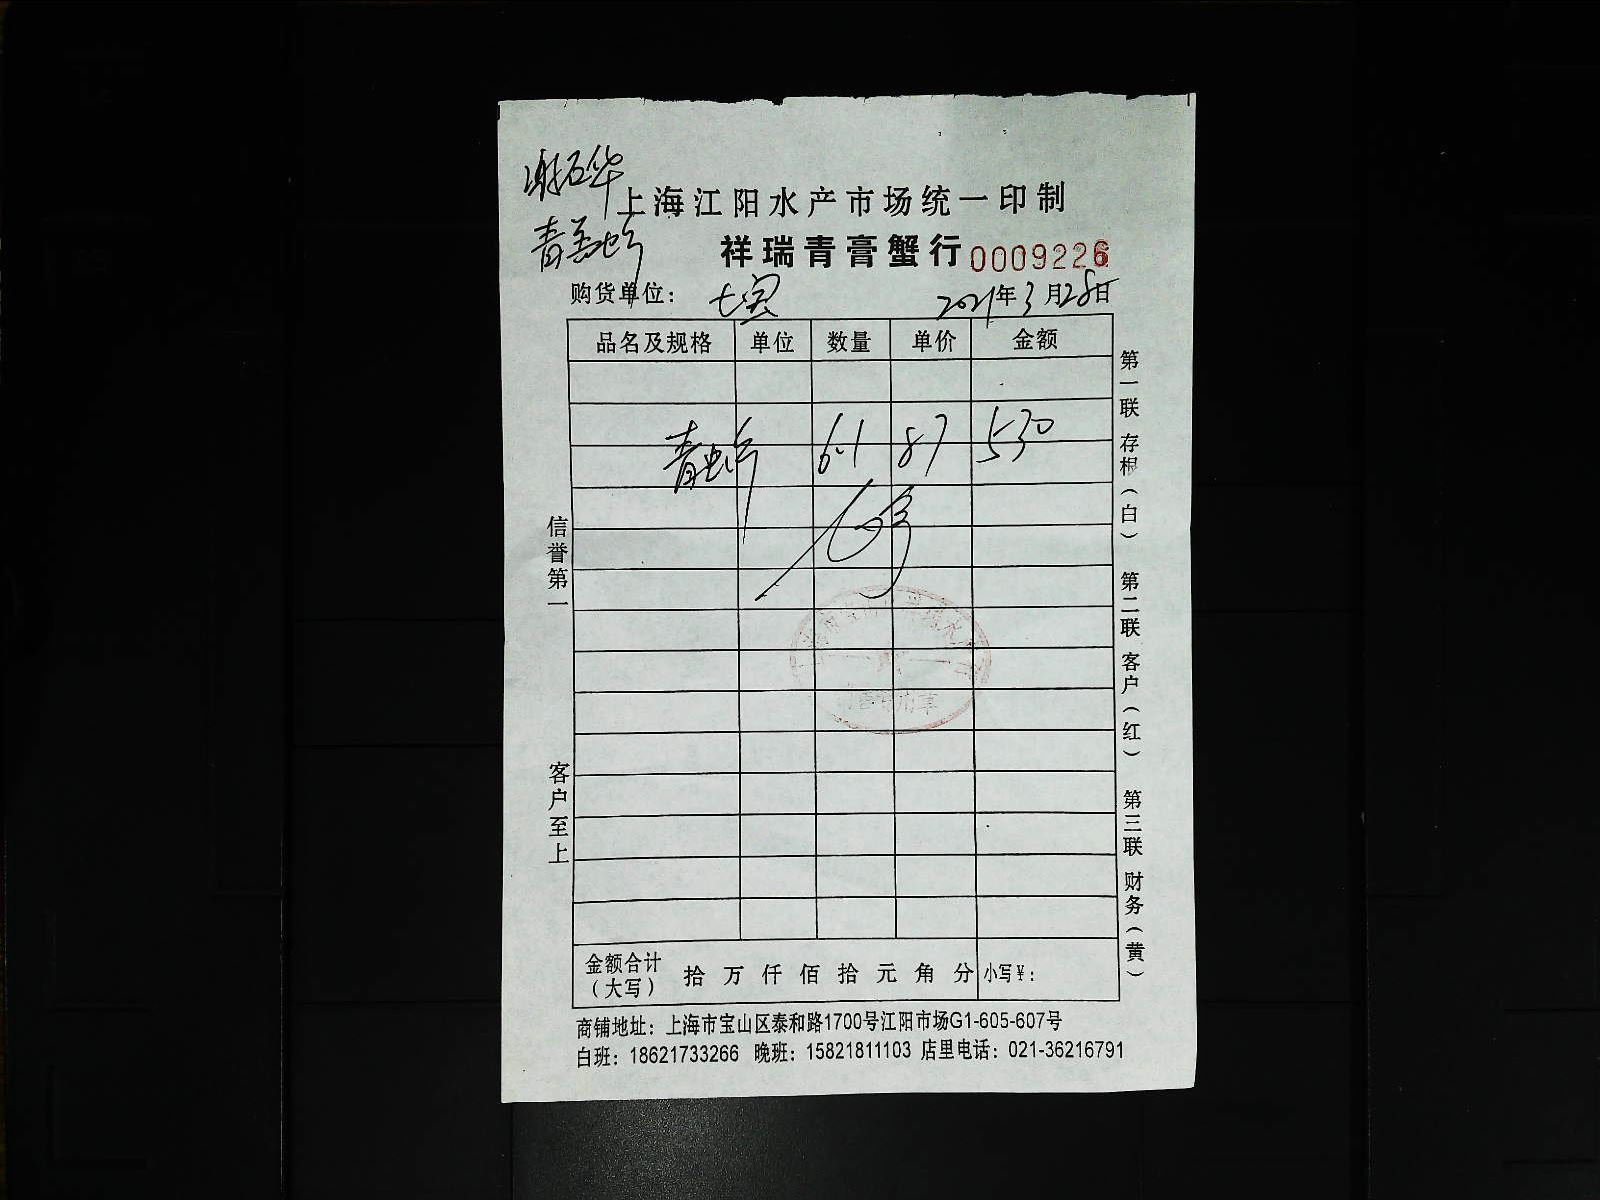 谢石华
上海江阳水产市场统一印制
青羔蚄
祥瑞青膏蟹行 0009226
购货单位： 七宝 2021年3月28日
品名及规格 单位 数量 单价 金额
青 6.1 87 530
信誉第一
客户至上
第一联 存根（白） 第二联 客户（红） 第三联 财务（黄）
用章
金额合计（大写） 拾 万 仟 佰 拾 元 角 分 小写¥：
商铺地址：上海市宝山区泰和路1700号江阳市场G1-605-607号
白班：18621733266 晚班：15821811103 店里电话：021-36216791